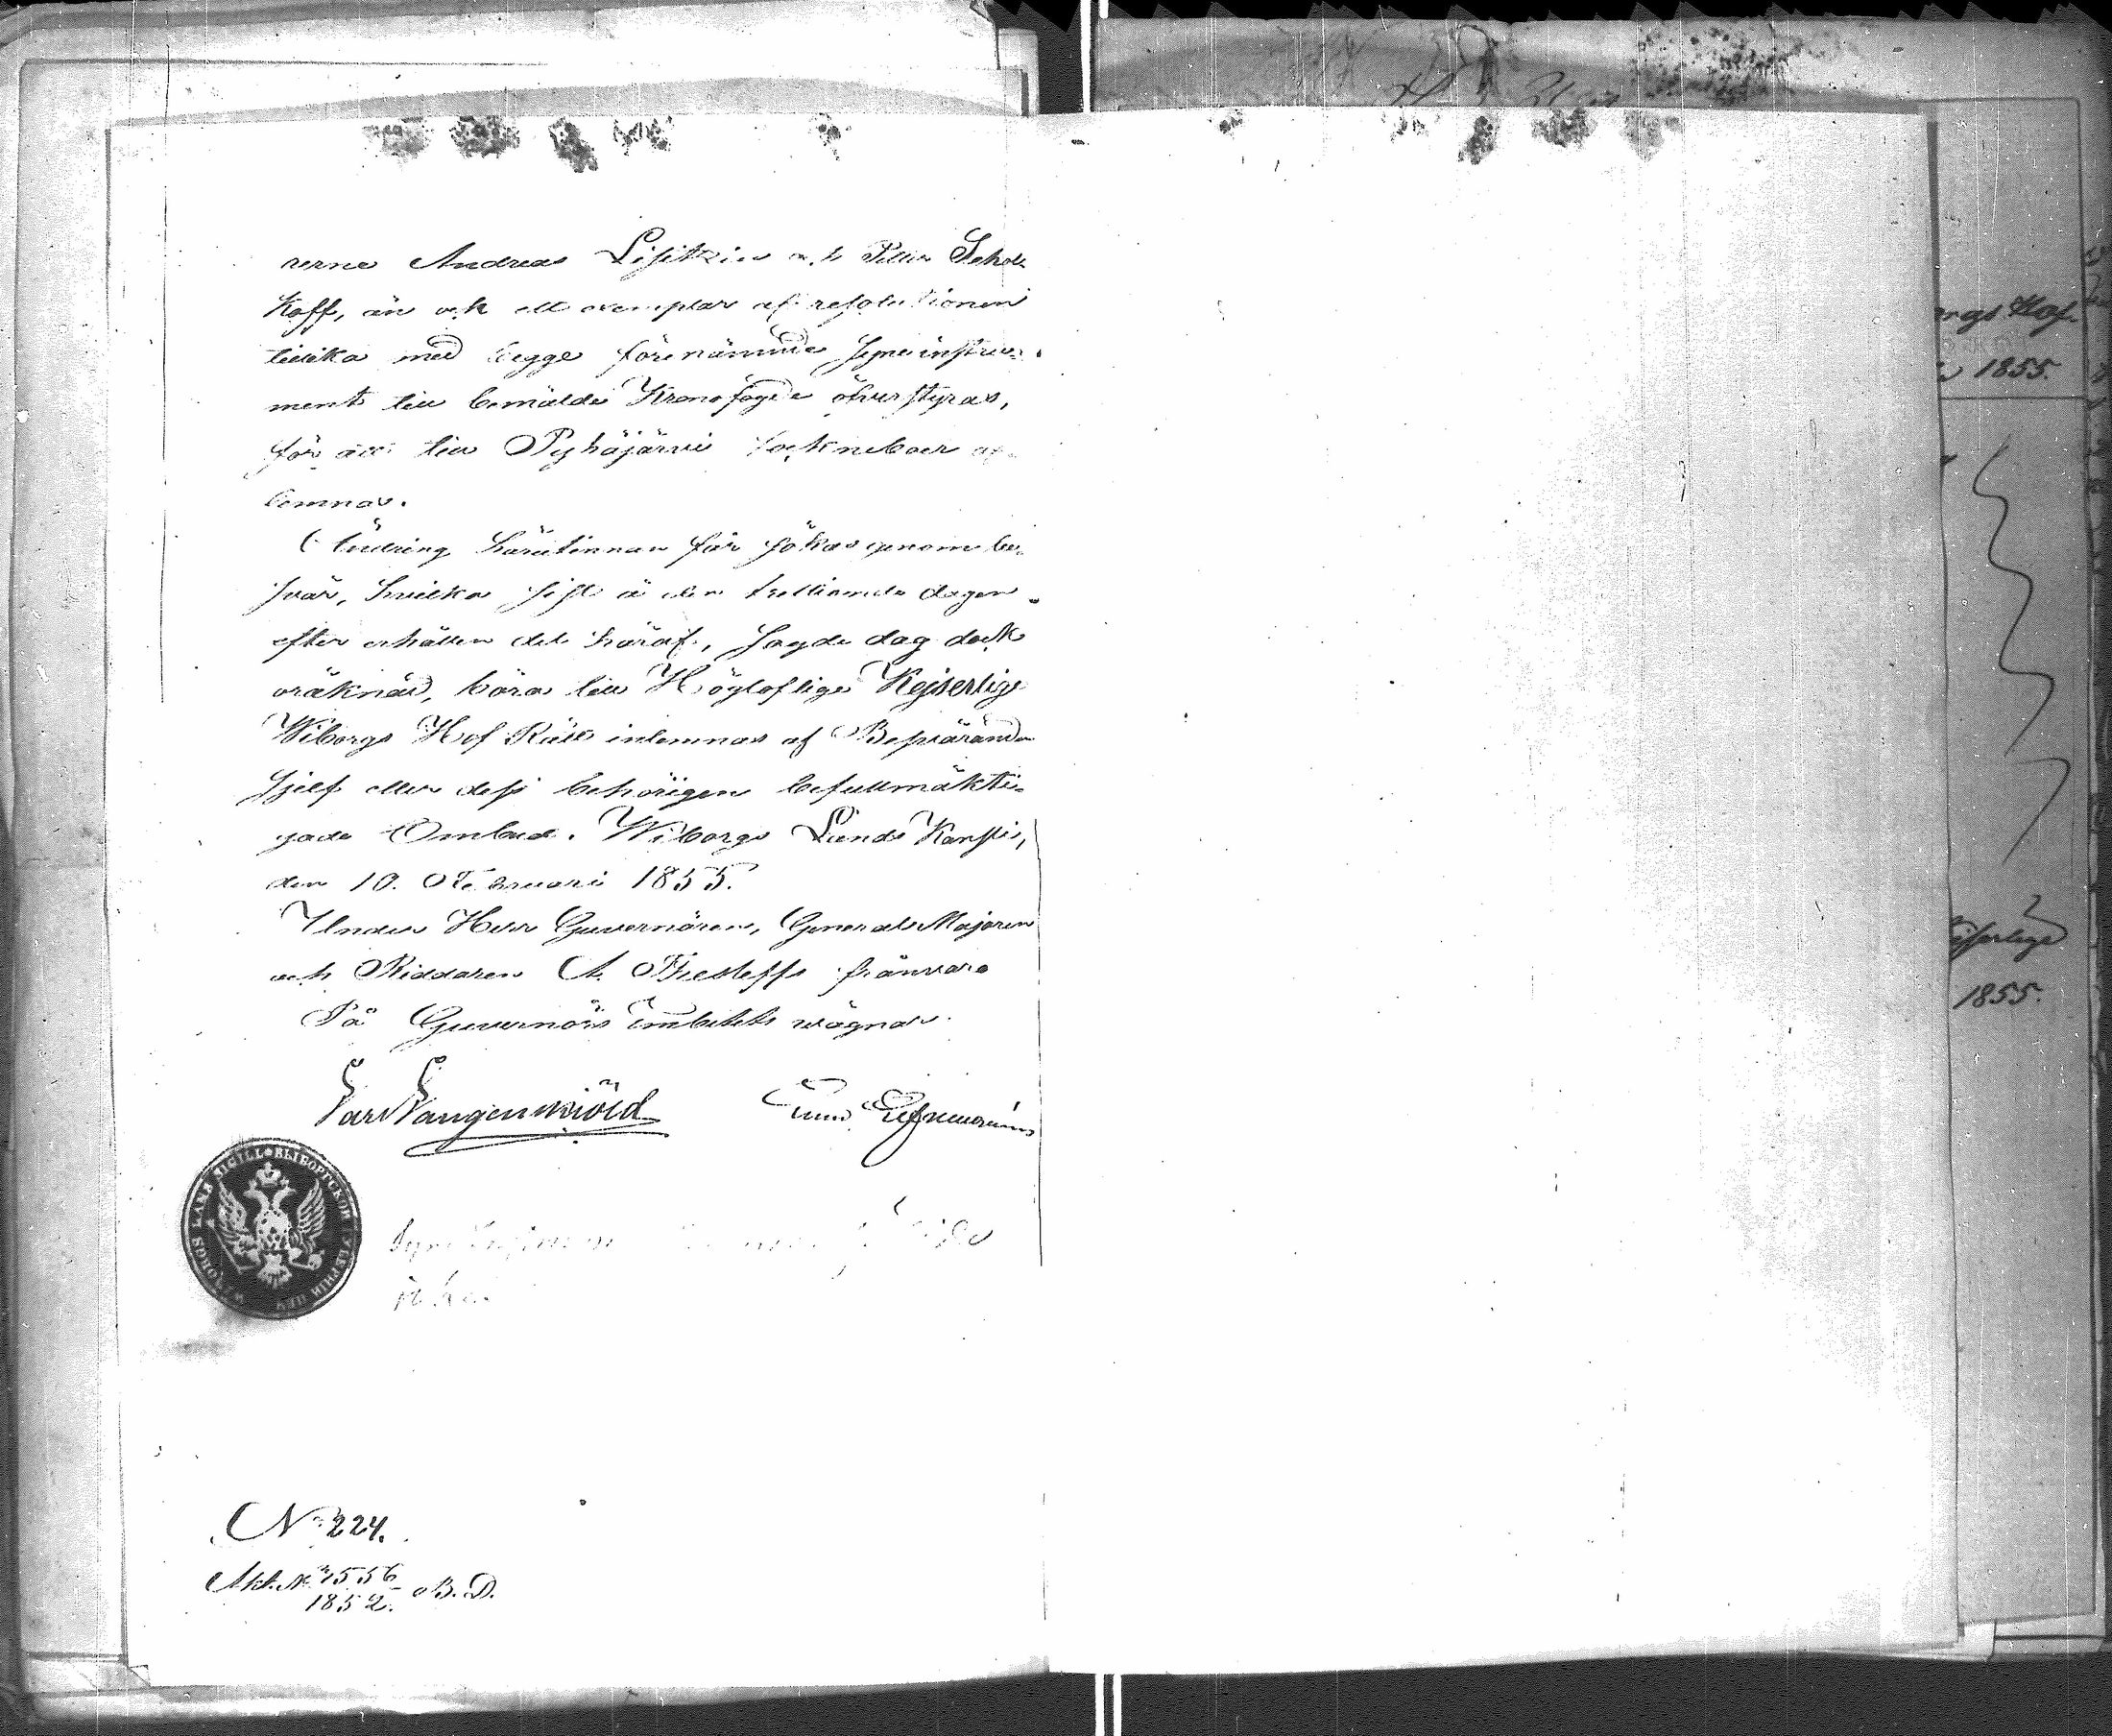 rerne Andreas Lisitzin och Petter Schol-
koff, än ock ett exemplar af resolutionen
tillika med begge förenämnde syneinstru-
ment till bemälde Kronofogde öfverstyras,
för att till Pyhäjärvi sockneboer af-
lemnas.
Ändring häruti innan får sökas genom be-
svär, hvilka sist å den trettionde dagen
efter erhållen del häraf, sagde dag dock
oräknad, böra till Högloflige Kejserlige
Wiborgs Hof Rätt inlemnas af Besvärande
sjelf eller dess behörigen befullmäkti-
gade Ombud. Wiborgs Lands Kansli,
den 10. Februari 1855.
Under Herr Guvernören, General Majoren
och Riddaren A. Thesleffs frånvaro
På Guvernörs Embetets vägnar.
Carl Langenskiöld
WIBORGS LÄNS SIGILL ВЫБОРГСКОЙ ГУБЕРНІИ ПЕЧ
No 224.
Akt. No 1556
1852. B. D.
rgs Hof-
1855.
jserlige
1855.